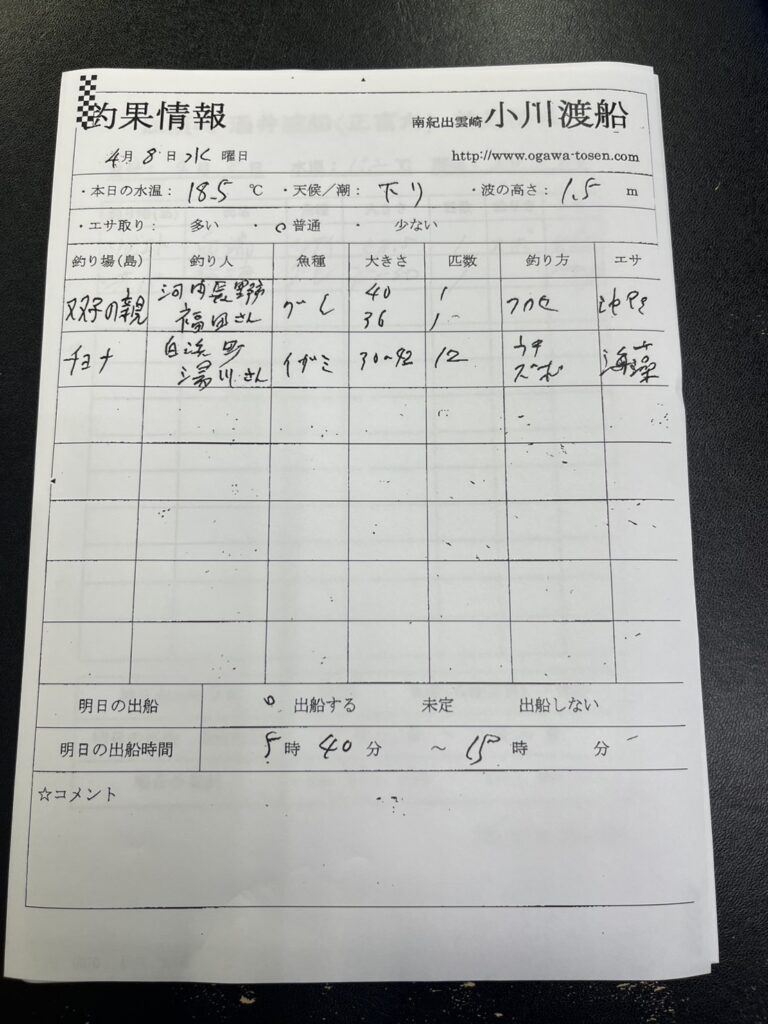 釣果情報 南紀出雲崎 小川渡船
4月8日水曜日 http://www.ogawa-tosen.com
・本日の水温： 18.5 ℃ ・天候／潮： 下り ・波の高さ： 1.5 m
・エサ取り： 多い ・ 普通 ・ 少ない
釣り場(島) 釣り人 魚種 大きさ 匹数 釣り方 エサ
双子の親 河内長野市 福田さん グレ 40 1 フカセ
36 1
チョナ 白浜町 湯川さん イガミ 30〜42 12 ウキ ズボ 海藻
明日の出船 出船する 未定 出船しない
明日の出船時間 5時40分 〜 15時 分
☆コメント